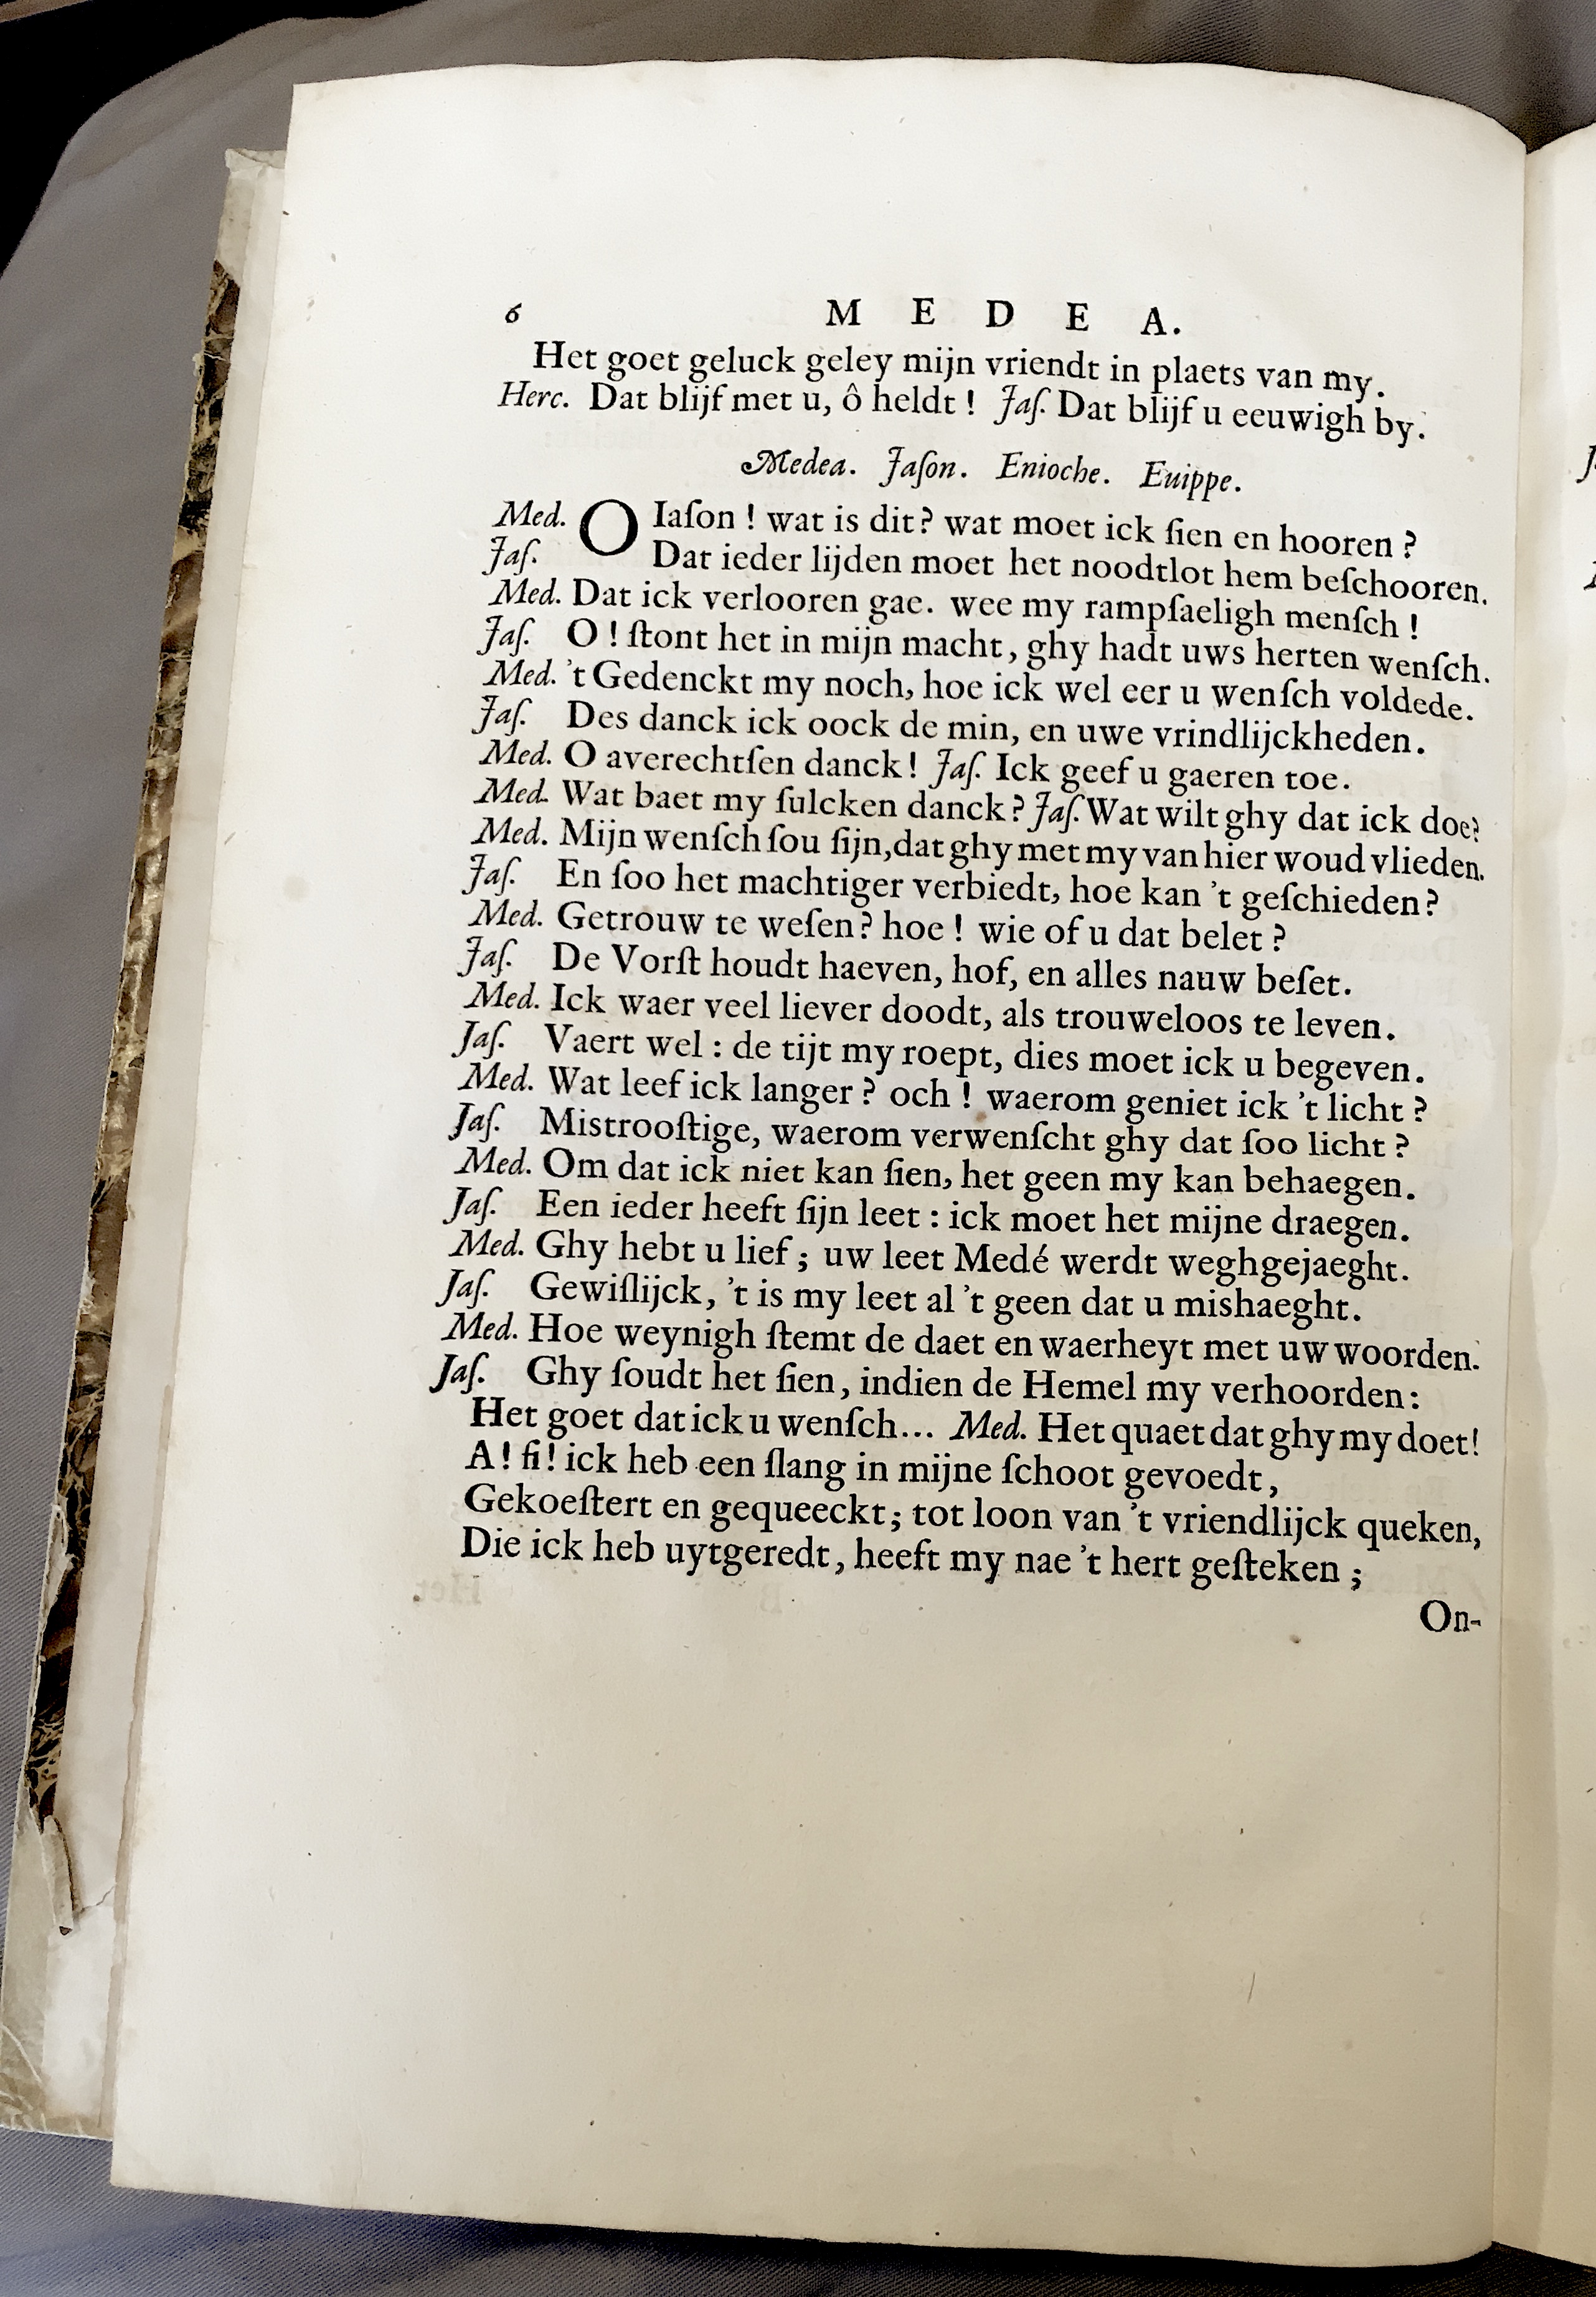 6 M E D E A.
Het goet geluck geley mijn vriendt in plaets van my.
Herc. Dat blijf met u, ô heldt! Jaſ. Dat blijf u eeuwigh by.
Medea. Jaſon. Enioche. Euippe.
Med. O Iaſon! wat is dit? wat moet ick ſien en hooren?
Jaſ. Dat ieder lijden moet het noodtlot hem beſchooren.
Med. Dat ick verlooren gae. wee my rampſaeligh menſch!
Jaſ. O! ſtont het in mijn macht, ghy hadt uws herten wenſch.
Med. 't Gedenckt my noch, hoe ick wel eer u wenſch voldede.
Jaſ. Des danck ick oock de min, en uwe vrindlijckheden.
Med. O averechtſen danck! Jaſ. Ick geef u gaeren toe.
Med. Wat baet my ſulcken danck? Jaſ. Wat wilt ghy dat ick doe?
Med. Mijn wenſch ſou ſijn, dat ghy met my van hier woud vlieden.
Jaſ. En ſoo het machtiger verbiedt, hoe kan 't geſchieden?
Med. Getrouw te weſen? hoe! wie of u dat belet?
Jaſ. De Vorſt houdt haeven, hof, en alles nauw beſet.
Med. Ick waer veel liever doodt, als trouweloos te leven.
Jaſ. Vaert wel: de tijt my roept, dies moet ick u begeven.
Med. Wat leef ick langer? och! waerom geniet ick 't licht?
Jaſ. Mistrooſtige, waerom verwenſcht ghy dat ſoo licht?
Med. Om dat ick niet kan ſien, het geen my kan behaegen.
Jaſ. Een ieder heeft ſijn leet: ick moet het mijne draegen.
Med. Ghy hebt u lief; uw leet Medé werdt weghgejaeght.
Jaſ. Gewiſlijck, 't is my leet al 't geen dat u mishaeght.
Med. Hoe weynigh ſtemt de daet en waerheyt met uw woorden.
Jaſ. Ghy ſoudt het ſien, indien de Hemel my verhoorden:
Het goet dat ick u wenſch... Med. Het quaet dat ghy my doet!
A! fi! ick heb een ſlang in mijne ſchoot gevoedt,
Gekoeſtert en gequeeckt; tot loon van 't vriendlijck queken,
Die ick heb uytgeredt, heeft my nae 't hert geſteken;
On-